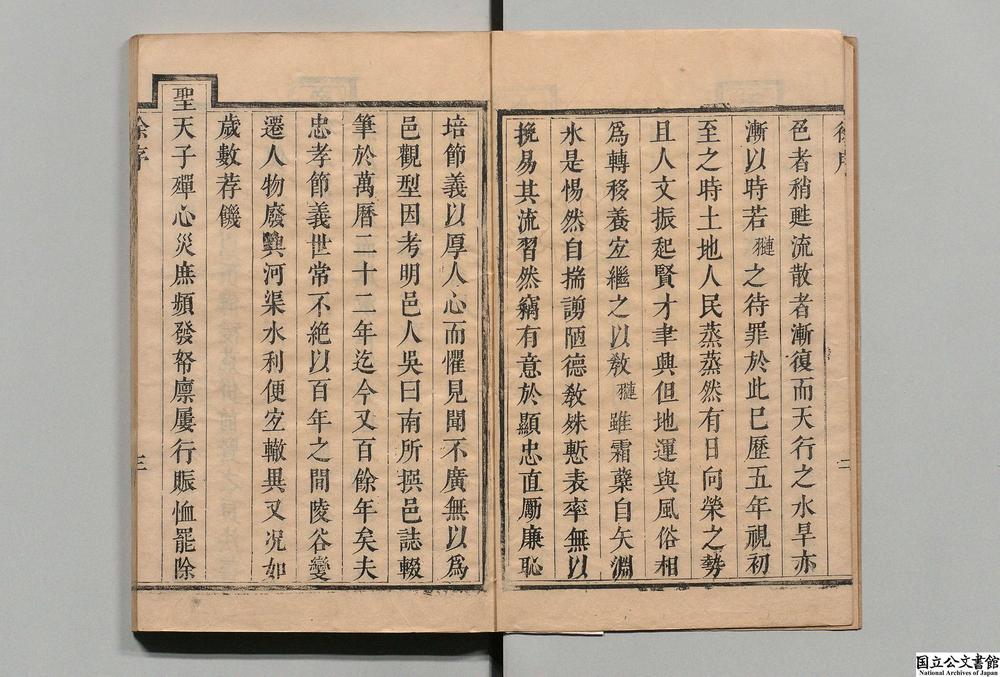 色者稍甦流散者漸復而天行之水旱亦
漸以時若𤠔之待罪於此已歷五年視初
至之時土地人民蒸蒸然有日向榮之勢
且人文振起賢才聿興但地運與風俗相
為轉移養宜繼之以教𤠔雖霜蘗自矢淵
氷是惕然自揣謭陋德教殊慙表率無以
挽易其流習然竊有意於顯忠直勵廉恥
培節義以厚人心而懼見聞不廣無以為
邑觀型因考明邑人吳曰南所撰邑誌輟
筆於萬曆二十二年迄今又百餘年矣夫
忠孝節義世常不絕以百年之間陵谷變
遷人物廢興河渠水利便宜轍異又况如
歲數荐饑
聖天子殫心災庶頻發帑廩屢行賑恤罷除
徐序
三
国立公文書館
National Archives of Japan